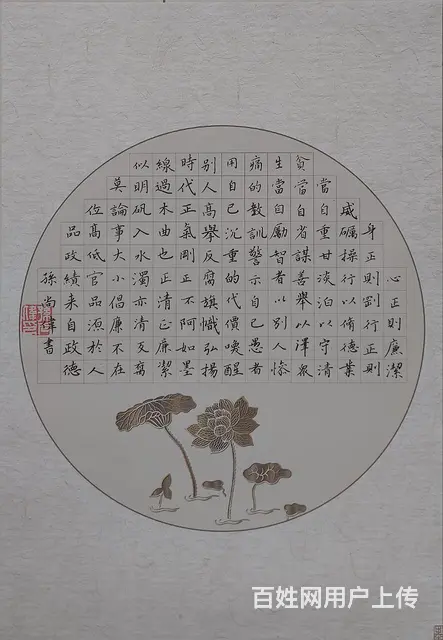 心正則廉潔
身正則行正則
威礪操行以脩德業
當自重甘淡泊以守清
貧當自省謀善舉以澤眾
生當自勵智者以別人慘
痛的教訓警示自己愚者
用自己沉重的代價喚醒
別人高舉反腐旗幟弘揚
時代正氣剛正不阿如墨
線過木曲也正清正廉潔
似明矾入水濁亦清反腐
莫論事大小倡廉不在
位高低官品源於人
品政績來自政德
孫尚書
百姓网用户上传